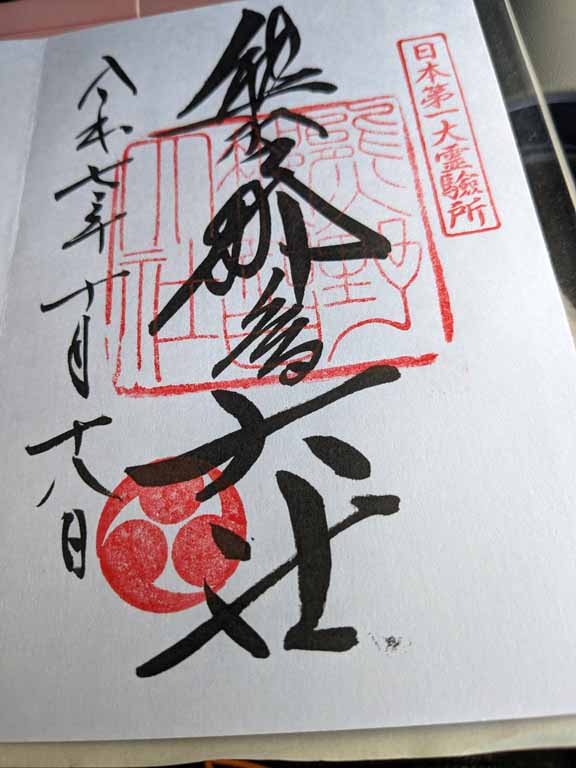 日本第一大霊驗所
熊野那智大社
熊野那智大社
令和七年十月十八日